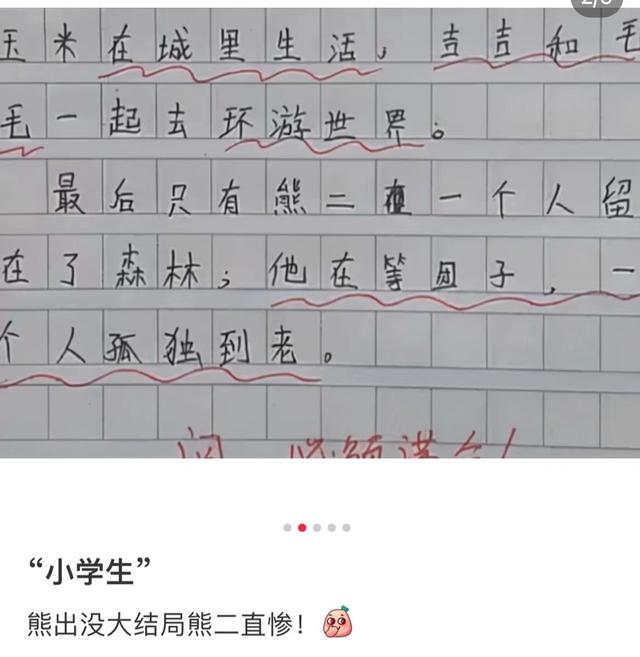 玉米在城里生活，吉吉和毛
毛一起去环游世界。
最后只有熊二在一个人留
在了森林；他在等团子，一
个人孤独到老。
“小学生”
熊出没大结局熊二直惨！